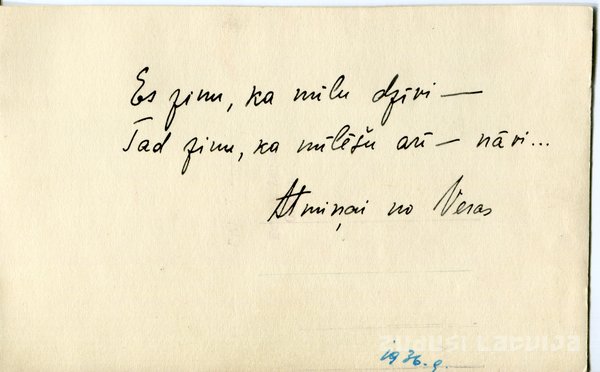 Es zinu, ka mīlu dzīvi —
Tad zinu, ka mīlēšu arī — nāvi...
Atmiņai no Veras
ZUDUSI LATVIJA
1936. g.